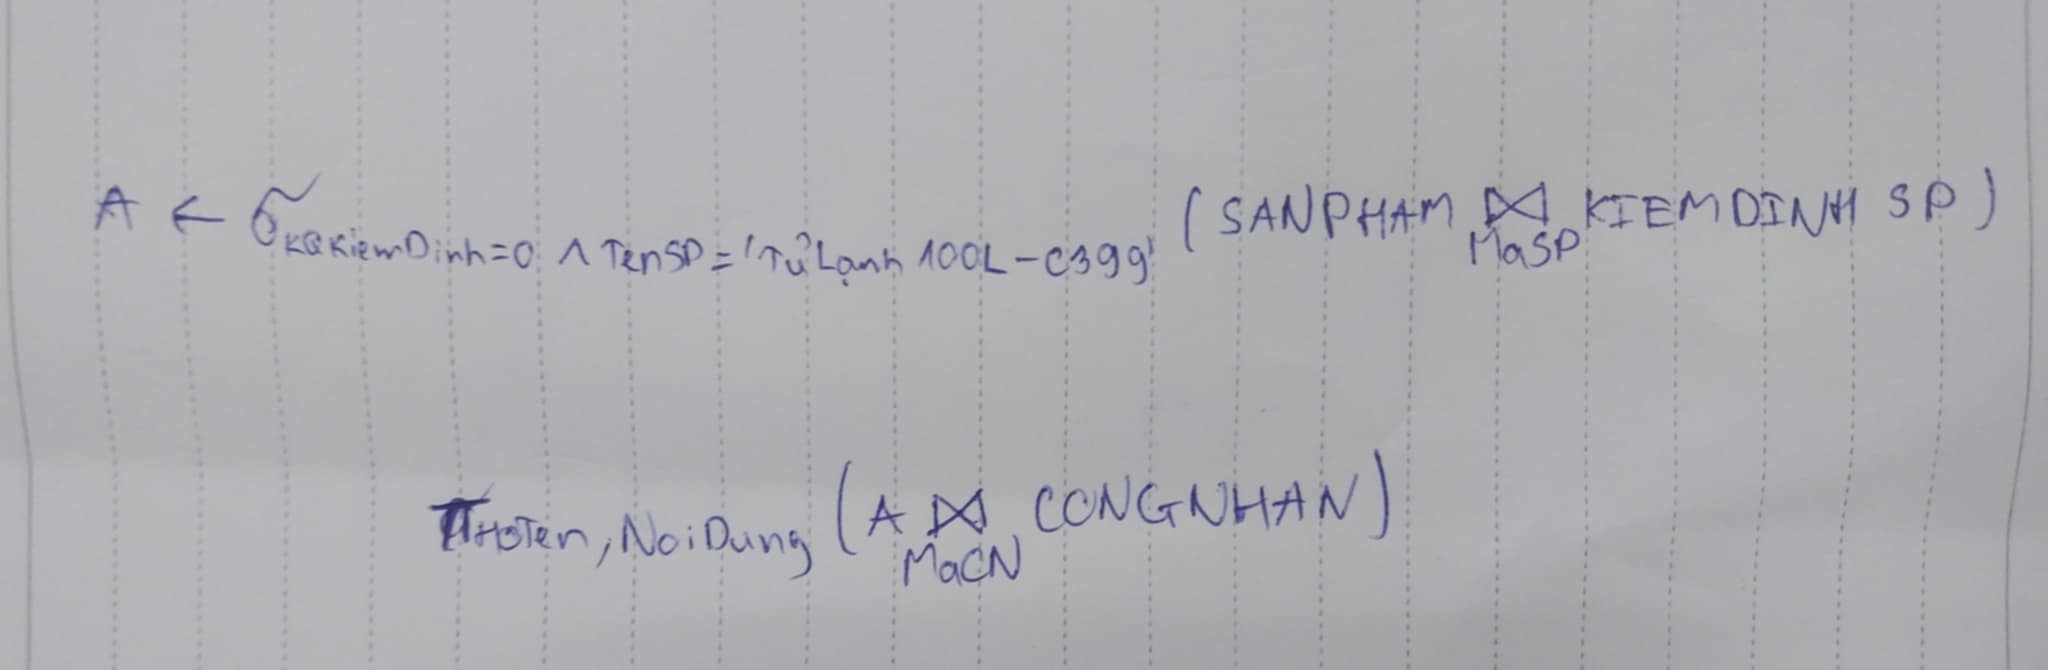 A ← σ KQKiemDinh=0 ∧ TenSP='Tủ Lạnh 100L-C399' (SANPHAM ⋈ MaSP KIEMDINH SP)
π HoTen, NoiDung (A ⋈ MaCN CONGNHAN)